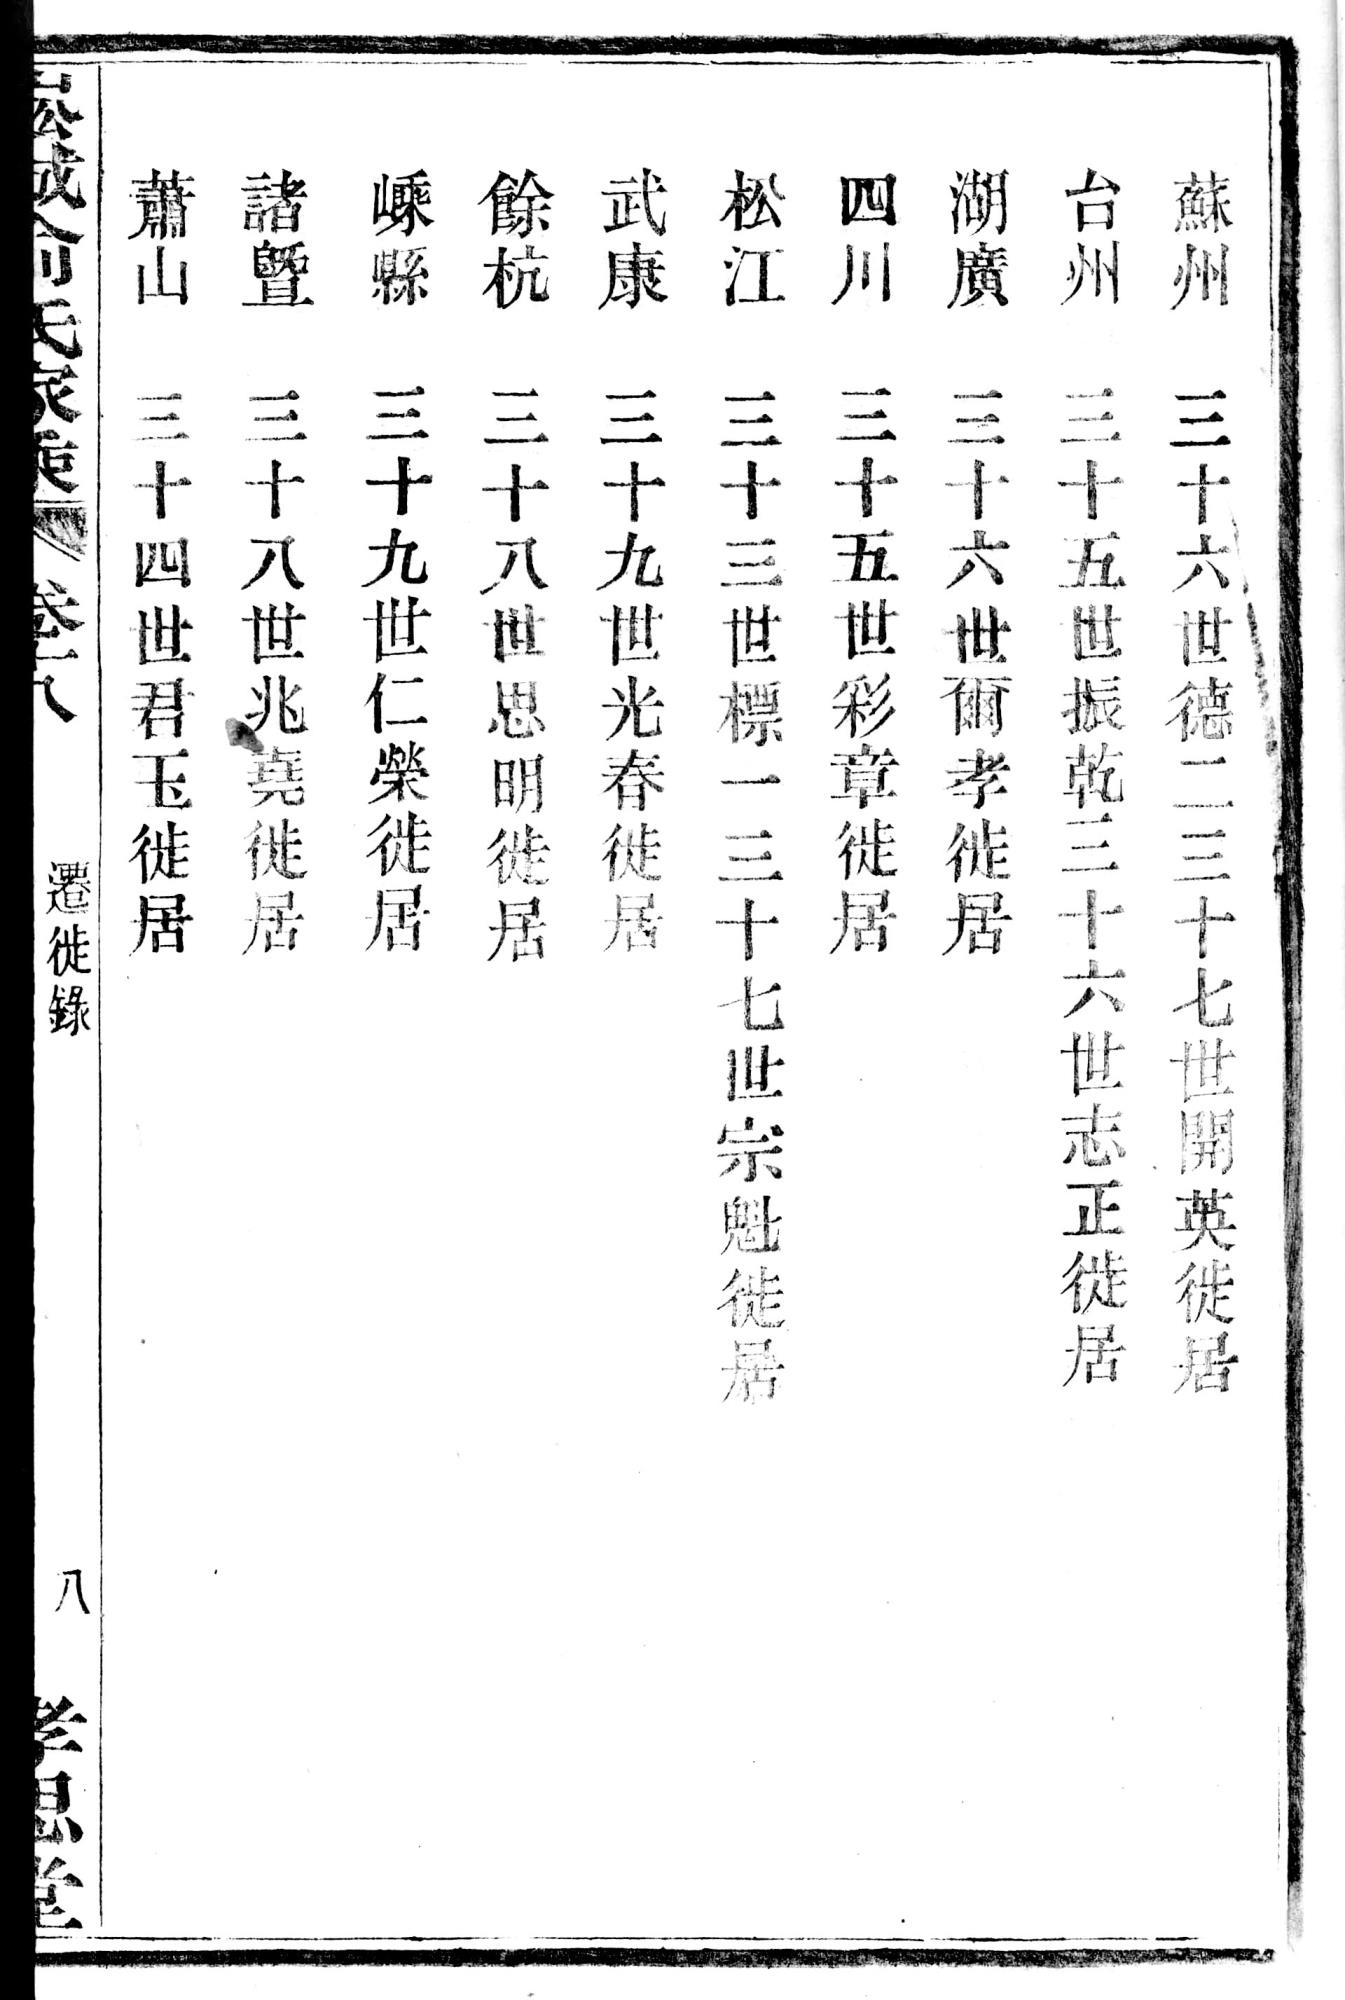 蘇州　三十六世德二三十七世開英徙居
台州　三十五世振乾三十六世志正徙居
湖廣　三十六世爾孝徙居
四川　三十五世彩章徙居
松江　三十三世標一三十七世宗魁徙居
武康　三十九世光春徙居
餘杭　三十八世思明徙居
嵊縣　三十九世仁榮徙居
諸暨　三十八世兆堯徙居
蕭山　三十四世君玉徙居
崧城俞氏家乘　卷十八　遷徙錄　八　孝思堂